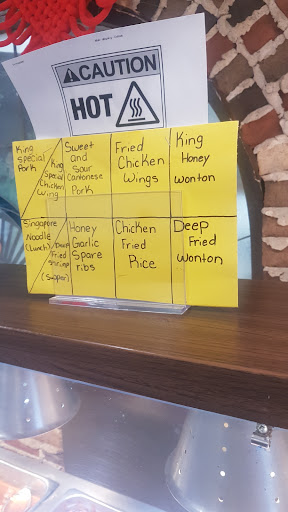 CAUTION
HOT
King
Special
Pork
King
Special
Chicken
Wing
Sweet
and
Sour
Cantonese
Pork
Fried
Chicken
Wings
King
Honey
Wonton
Singapore
Noodle
(Lunch)
Deep
Fried
Shrimp
(Supper)
Honey
Garlic
Spare
ribs
Chicken
Fried
Rice
Deep
Fried
Wonton